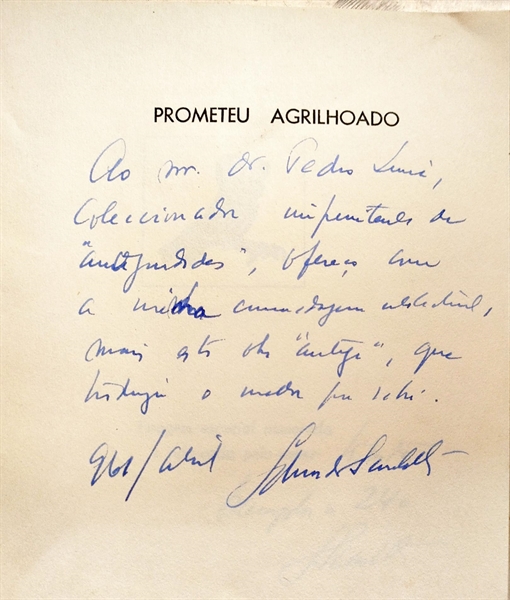 PROMETEU AGRILHOADO
Ao sr. dr. Pedro
Coleccionador impenitente de
"antiguidades", ofereço com
a minha camaradagem
mais esta obra "antiga", que
traduzi o melhor que sabia.
961/Abril Eduardo Scarlatti